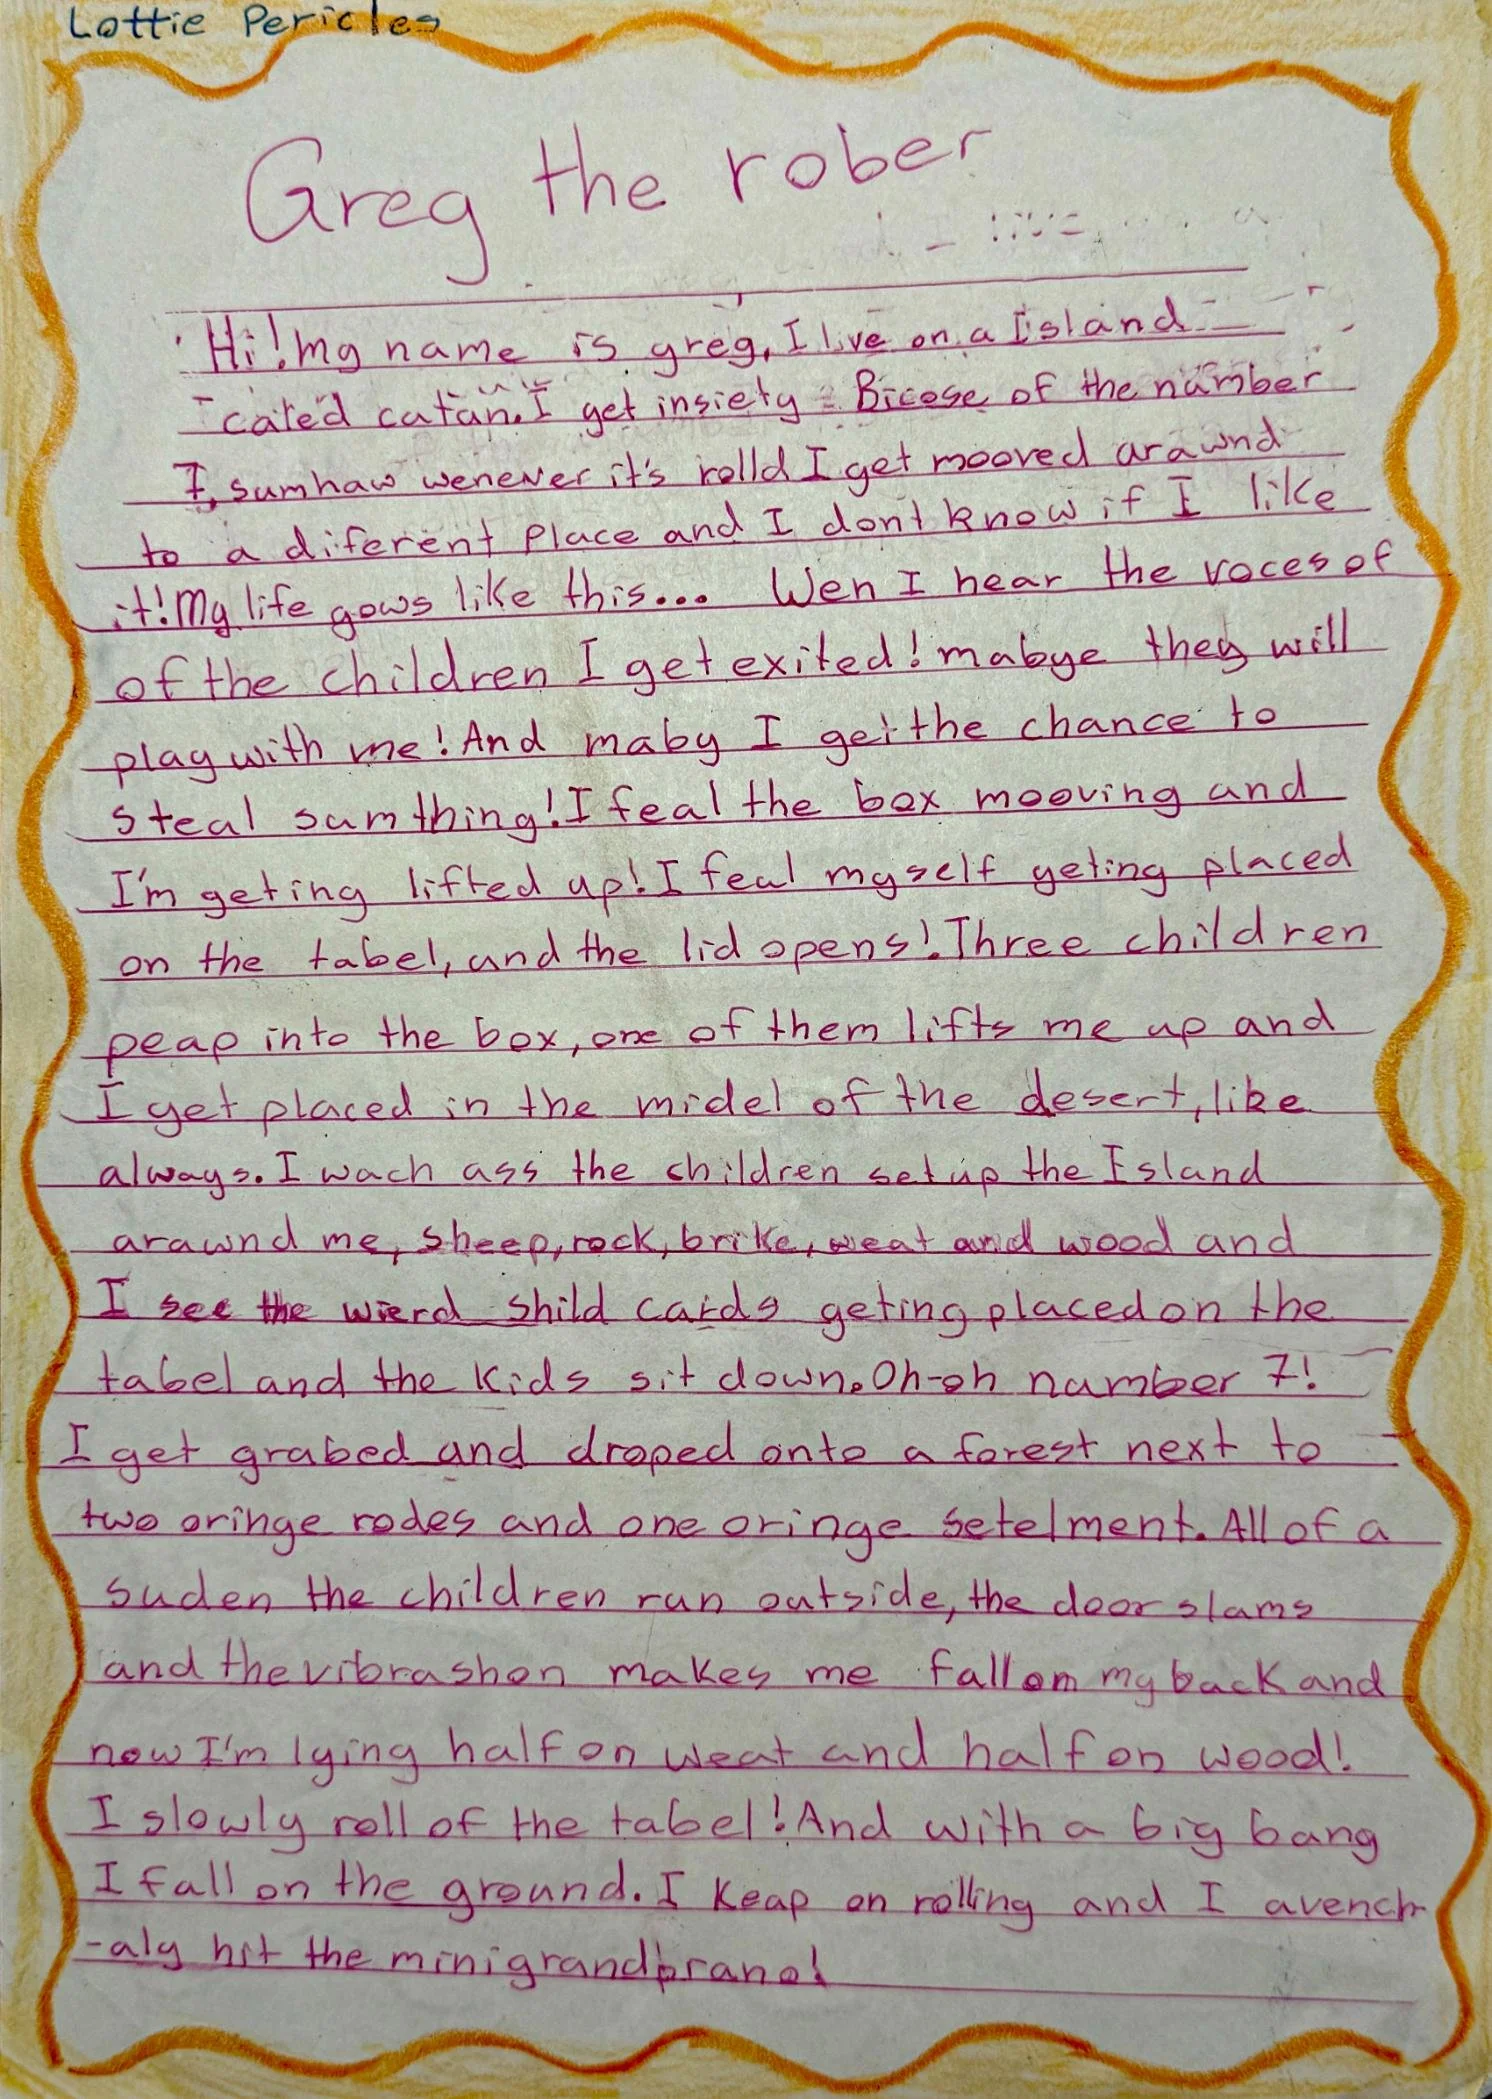 Lottie Pericles
Greg the rober
Hi! my name is greg, I live on a Island
caled catan. I get insiety Bicose of the number
7, sumhaw wenever it's rolld I get mooved arawnd
to a diferent place and I dont know if I like
it! My life gows like this... Wen I hear the voces of
of the children I get exited! mabye they will
play with me! And maby I get the chance to
steal sumthing! I feal the box mooving and
I'm geting lifted up! I feal myself geting placed
on the tabel, and the lid opens! Three children
peap into the box, one of them lifts me up and
I get placed in the midel of the desert, like
always. I wach ass the children set up the Island
arawnd me, sheep, rock, brike, weat and wood and
I see the wierd shild cards geting placed on the
tabel and the kids sit down. Oh-oh number 7!
I get grabed and droped onto a forest next to
two oringe rodes and one oringe setelment. All of a
suden the children run outside, the door slams
and the vibrashon makes me fall on my back and
now I'm lying half on weat and half on wood!
I slowly roll of the tabel! And with a big bang
I fall on the ground. I keap on rolling and I avench
-aly hit the minigrandpiano!